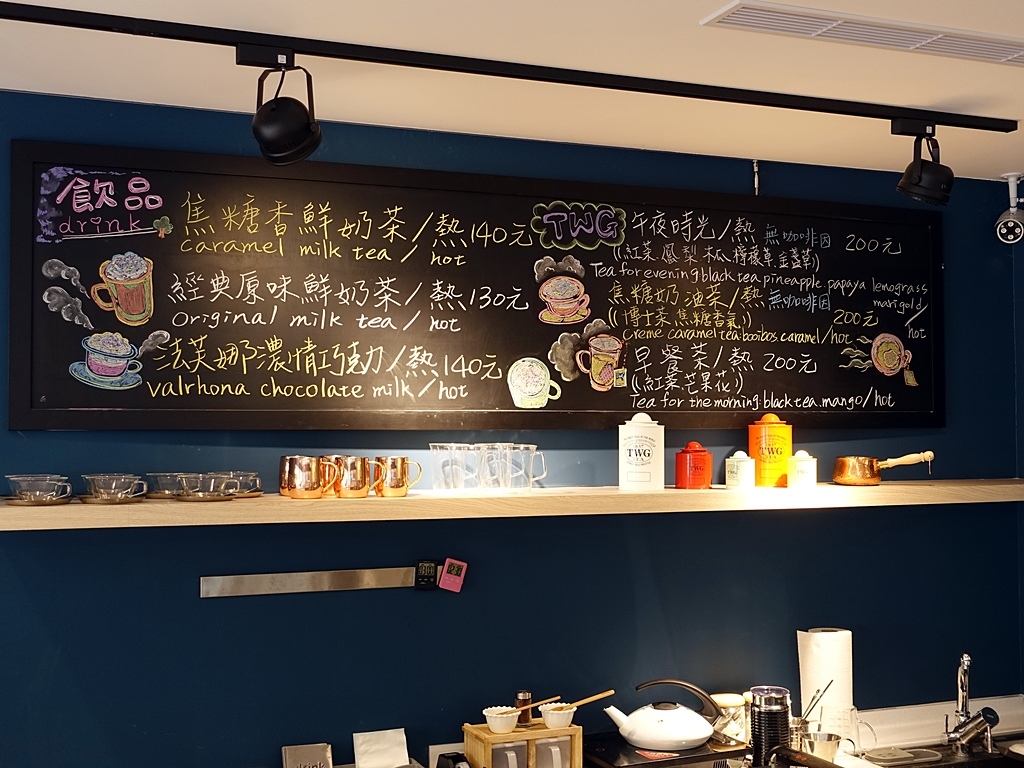 飲品
drink
焦糖香鮮奶茶/熱140元
caramel milk tea/hot
經典原味鮮奶茶/熱130元
original milk tea/hot
法芙娜濃情巧克力/熱140元
valrhona chocolate milk/hot
TWG
午夜時光/熱 無咖啡因 200元
(紅茶.鳳梨.木瓜.檸檬草.金盞草)
Tea for evening:black tea.pineapple.papaya.lemograss
marigold/
hot
焦糖奶油茶/熱 無咖啡因 200元
(博士茶.焦糖香氣)
Creme caramel tea:booibos.caramel/hot
早餐茶/熱 200元
(紅茶.芒果花)
Tea for the morning:black tea.mango/hot
TWG
TEA
TWG
TWG
TWG
TEA